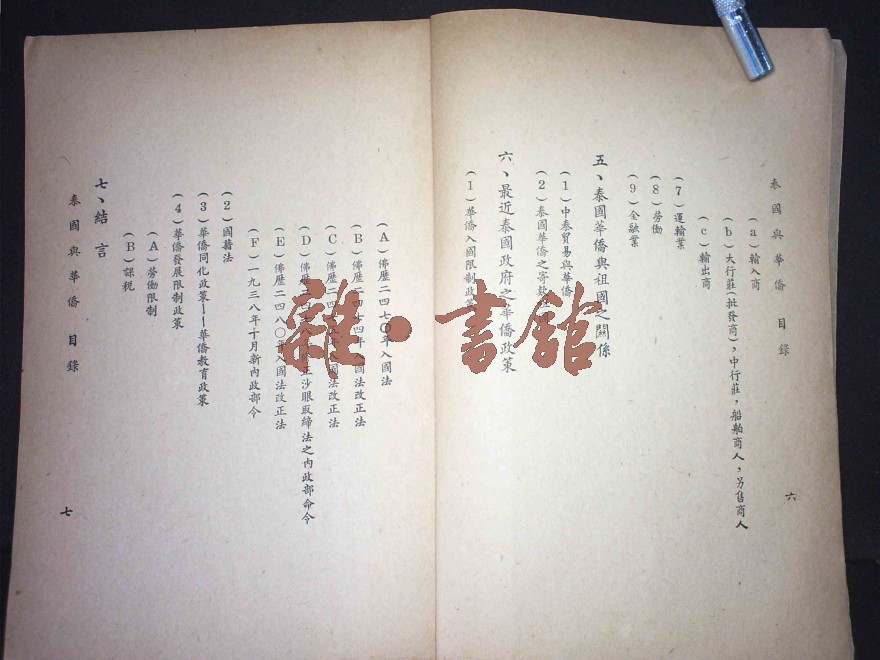 泰國與華僑 目錄
(a)輸入商
(b)大行莊(批發商),中行莊,船舶商人,另售商人
(c)輸出商
(7)運輸業
(8)勞働
(9)金融業
五、泰國華僑與祖國之關係
(1)中泰貿易與華僑
(2)泰國華僑之寄款
六、最近泰國政府之華僑政策
(1)華僑入國限制政策
六
(A)佛歷二四七〇年入國法
(B)佛歷二四七四年入國法改正法
(C)佛歷二四 國法改正法
(D)佛歷二四 沙眼取締法之內政部命令
(E)佛歷二四八〇年入國法改正法
(F)一九三八年十月新內政部令
(2)國籍法
(3)華僑同化政策——華僑教育政策
(4)華僑發展限制政策
(A)勞働限制
(B)課稅
七、結言
泰國與華僑 目錄
七
雜·書館